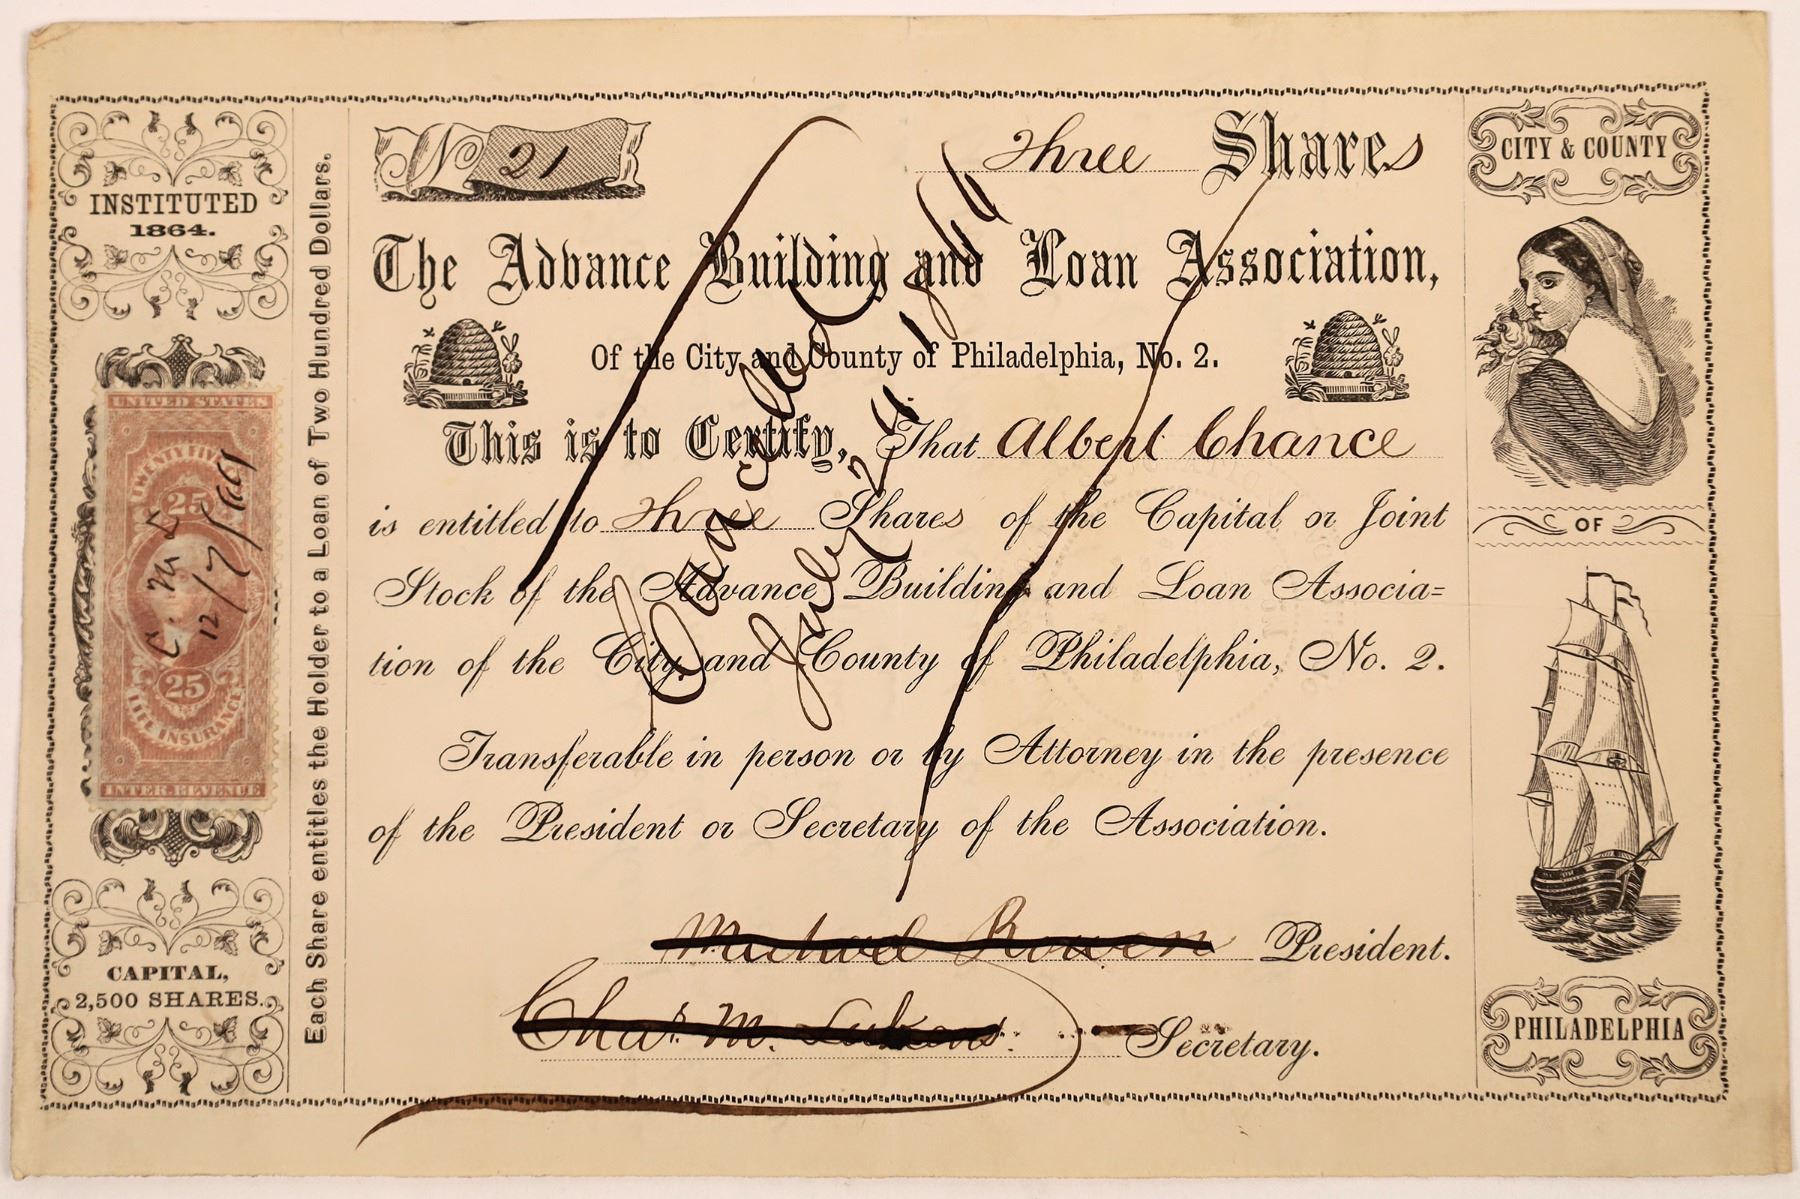 INSTITUTED
1864.
UNITED STATES
25
C. M. L
12/7/
25
LIFE INSURANCE
INTER. REVENUE
CAPITAL,
2,500 SHARES.
Each Share entitles the Holder to a Loan of Two Hundred Dollars.
No 21
Three Shares
The Advance Building and Loan Association,
Of the City and County of Philadelphia, No. 2.
This is to Certify, That Albert Chance
is entitled to Three Shares of the Capital or Joint
Stock of the Advance Building and Loan Associa=
tion of the City and County of Philadelphia, No. 2.
Transferable in person or by Attorney in the presence
of the President or Secretary of the Association.
Michael Rowen President.
Chas. M. Lukens. Secretary.
Cancelled
July 24 1866
CITY & COUNTY
OF
PHILADELPHIA